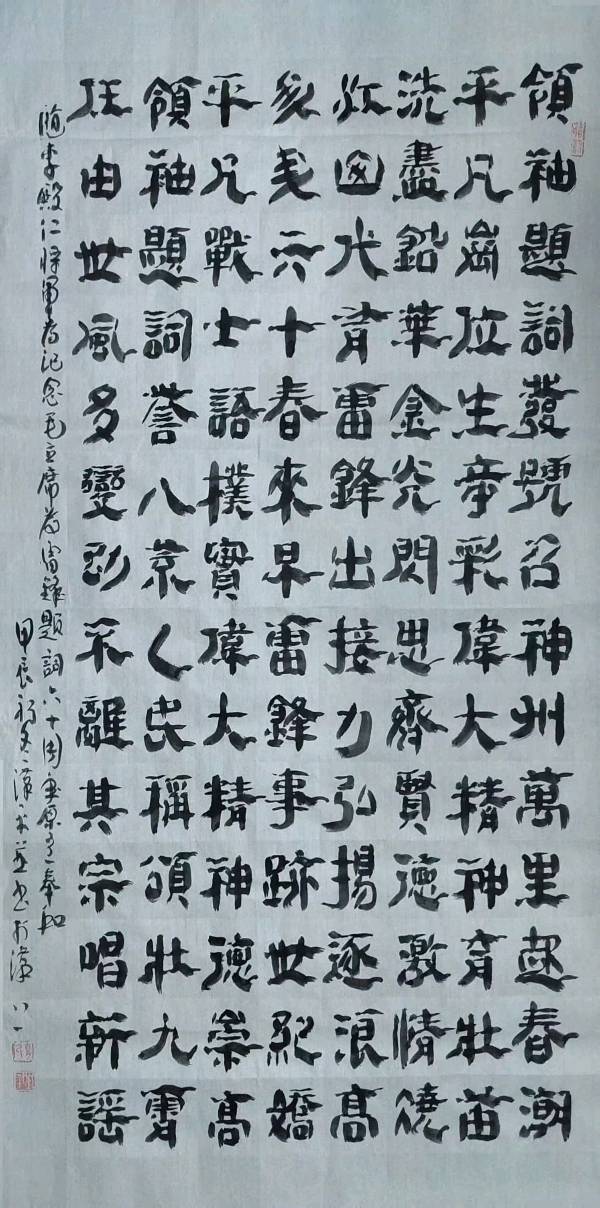 領袖題詞發號召神州萬里起春潮
平凡崗位生奇彩偉大精神育壯苗
洗盡鉛華金光閃思齊賢德激情燒
國代有雷鋒出接力弘揚逐浪高
六十春來早雷鋒事跡世紀嬌
平凡戰士語樸實偉大精神德崇高
領袖題詞譽八人稱頌壯九霄
任由世風多變幻不離其宗唱新謠
隨李殿仁將軍為記念毛主席為雷鋒題詞六十周年原玉奉和
甲辰初冬